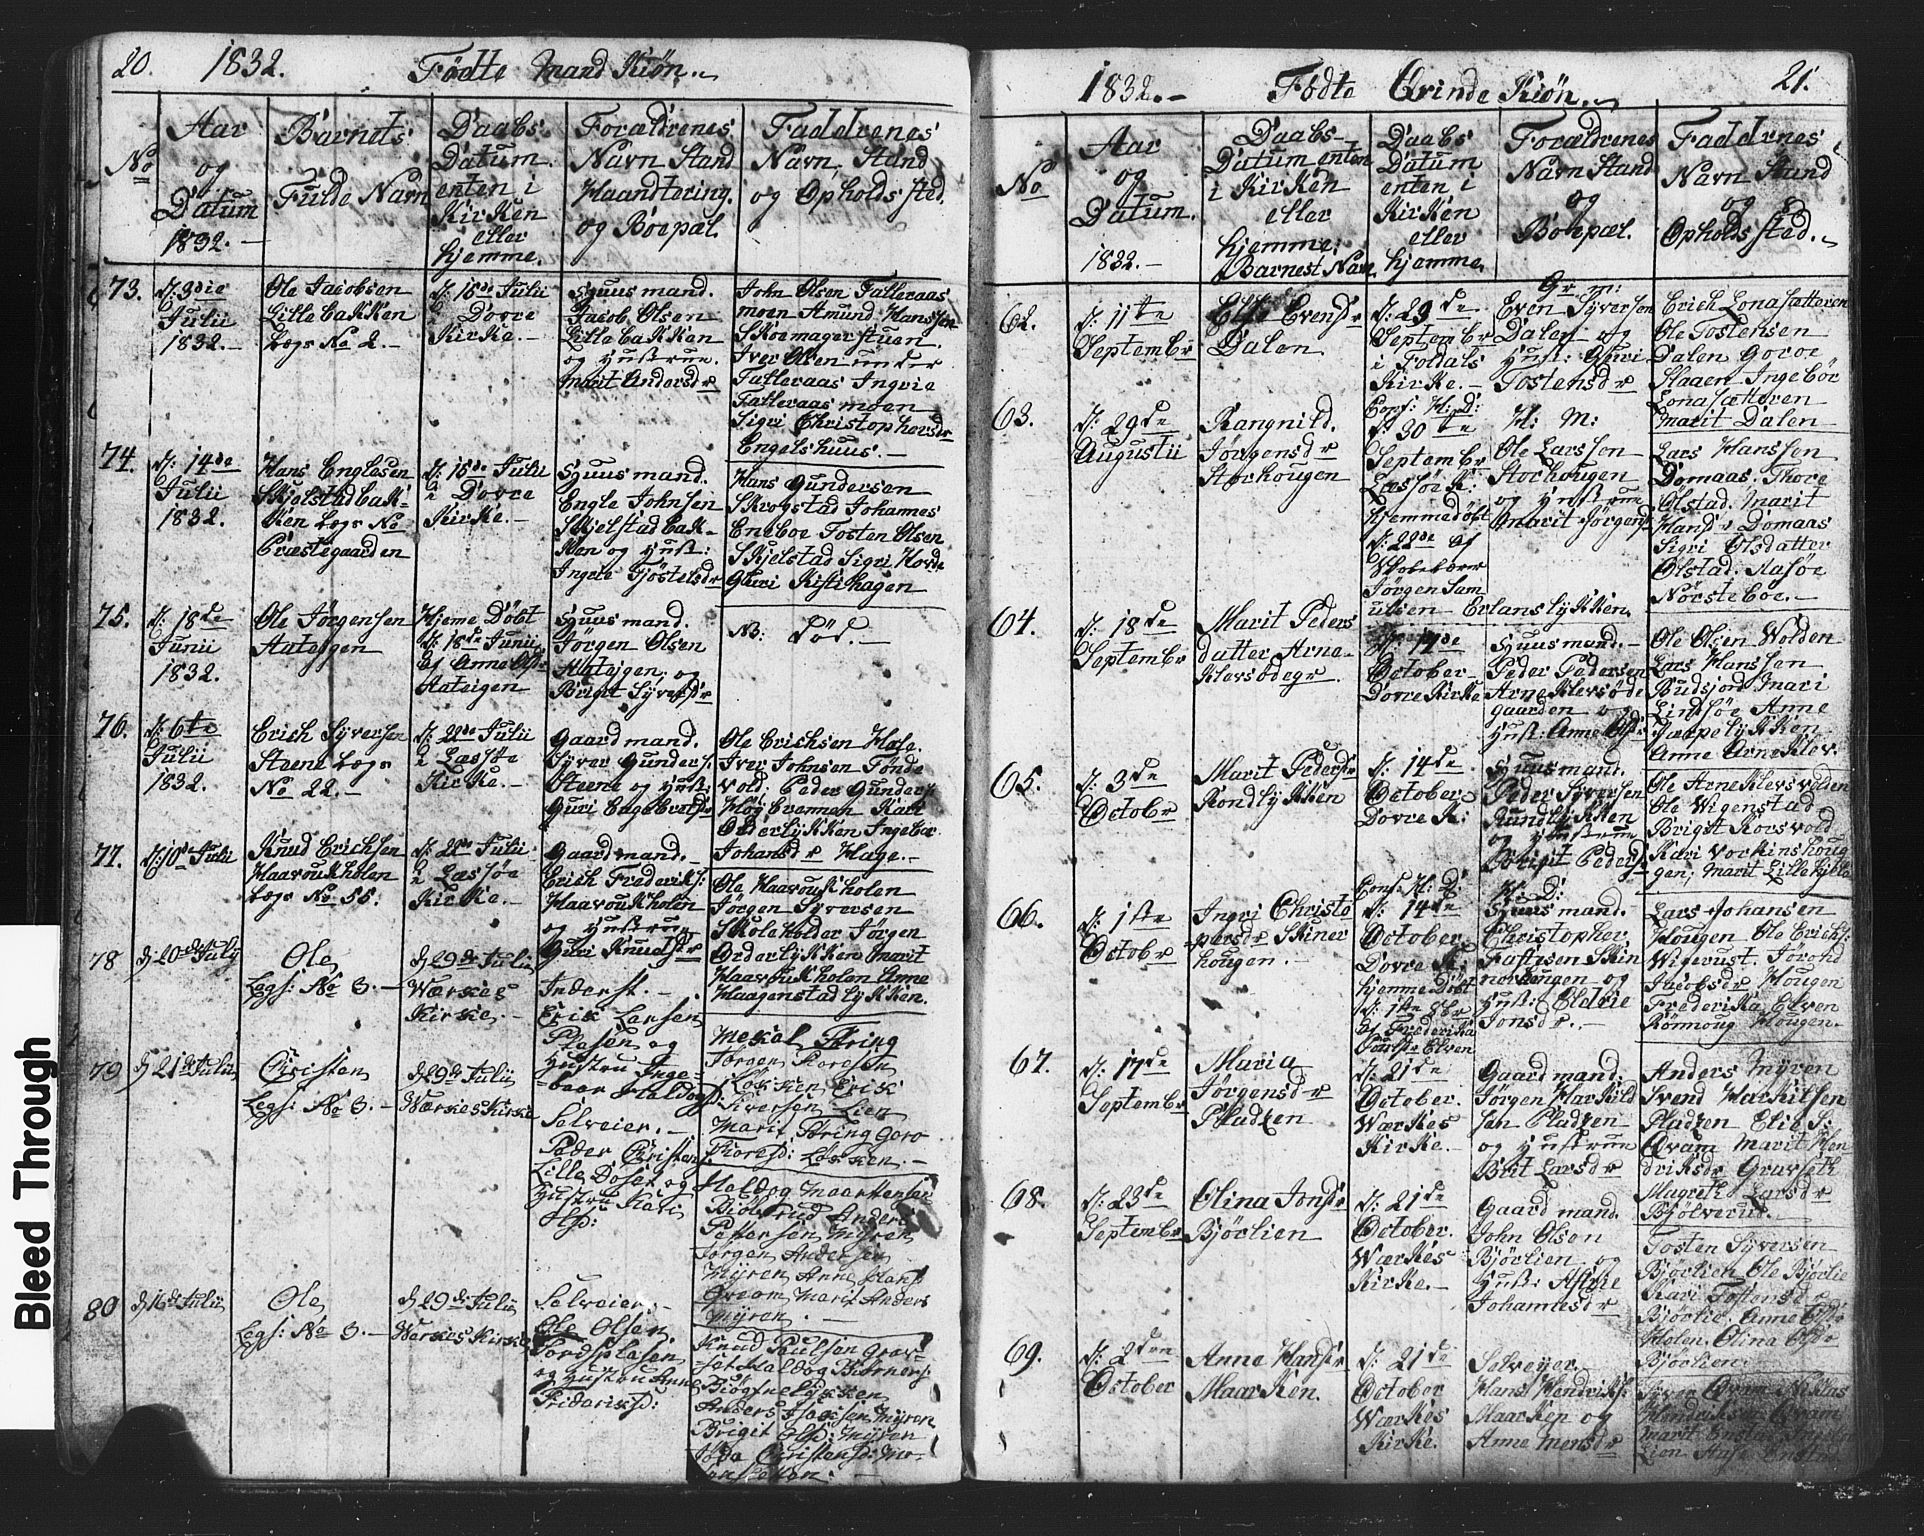 20. 1832. Födte Mand Kiön.
No
Aar
og
Datum
1832.
Barnets
Fulde Navn
Daabs
Datum
enten i
Kirken
eller
hjemme.
Forældrenes
Navn Stand
Haandtering
og Boepæl.
Faddrenes
Navn, Stand
og Opholds sted.
73.
d: 3die
Julii
1832.
Ole Jacobsen
Lillebakken
Legs No 2.
d: 15de Julii
i Dovre
Kirke.
Huusmand.
Jacob Olsen
Lillebakken
og Hustrue.
Marit Andersdr
John Olsen Talleraas
moen Amund Hanssen
Skomagerstuen.
Iver Olsen under
Talleraas Ingrie
Talleraas moen
Sigri Christophersdr
Engelshuus.
74.
d: 14de
Julii
1832.
Hans Englesen
Skjelstadbak-
ken Legs No
Præstegaarden
d: 15de Julii
i Dovre
Kirke.
Huusmand.
Engle Johnsen
Skjelstadbak-
ken og Hust:
Ingrie Tjöstelsdr
Hans Gundersen
Skrogstad Johannes
Eneboe Tosten Olsen
Skjelstad Sigri Hove
Guri Kistihagen
75.
d: 18de
Junii
1832.
Ole Jörgensen
Aateigen
Hjeme Döbt
d: 18de Junii
af Anne Olsdr
Aateigen
Huusmand.
Jörgen Olsen
Aateigen og
Brigit Syversdr
NB: Död.
76.
d: 6te
Julii
1832.
Erich Syversen
Steene Legs
No 22.
d: 22de Julii
i Lessöe
Kirke.
Gaardmand.
Syver Gunders:
Steene og Hust:
Guri Engebretsdr
Ole Erichsen Hage.
Iver Johnsen Tönde
vold: Peder Gunders:
Höybrennen Kari
Orderlykken Ingebor
Johansdr Hage.
77.
d: 10de Julii
Knud Erichsen
Haavoukholen
Legs No 55.
d: 22de Julii
i Lessöe
Kirke.
Gaardmand.
Erich Frederiks:
Haavoukholen
og Hustrue
Guri Knudsdr
Ole Haavoukholen
Jörgen Syversen
Skoleholder Jörgen
Orderlykken Marit
Haavoukholen Anne
Haagenstadlykken.
78
d 20de July
Ole
Legs: No 3.
d 29de Julii
Wærkes
Kirke.
Inderst.
Erik Larsen
Plasen og
Hustru Inge-
baar Haldogsd:
Mekal String
Jörgen Thoresen
Løkken Erik
Siversen Lien
Marit String Goro
Thoresd: Løkken.
79
d 21de Julii
Christen
Legs: No 3.
d 29de Julii
Wærkes Kirke
Selveier.
Peder Christens:
Lille Doset og
Hustru Kari
Olsd:
Haldog Maartensen
Biölverud Anders
Pettersen Myren
Jörgen Andersen
Myren Anne Hans
Qvam Marit Anders
Myren.
80
d 16de Julii
Ole
Legs: No 3.
d 29de Julii
Werkes Kirke
Selveier.
Ole Olsen
Jordsplasen
og Hustru Anne
Friderichsd:
Knud Paulsen Grav-
set Haldog Biörners:
Anders Isaksen Myren
Brigit Olsd: Myren
1832. Födte Qvinde Kiön. 21.
No
Aar
og
Datum.
1832.
Daabs
Datum enten
i Kirken
eller
hjemme.
Barnets Navn
Daabs
Datum
enten i
Kirken
eller
hjemme
Forældrenes
Navn Stand
og
Boepæl.
Faddrnes
Navn Stand
og
Opholds sted.
62.
d: 11te
Septembr
Elie Evensdr
Dalen.
d: 23de
Septembr
i Foldals
Kirke.
Gr: m:
Even Syversen
Dalen og
Hust: Guri
Tostensdr
Erich Lonasætteren
Ole Tostensen
Dalen Goroe
Haaen Ingebör
Lonasætteren
Marit Dalen
63.
d: 29de
Augustii
Rangnild.
Jörgensdr
Storhougen
d: 30te
Septembr
Lessöe K:
Hjemmedöbt
d: 22de af
Jörgen Sam
uelsen Erlanslykken.
H: M:
Ole Larssen
Storhougen
og Hustrue
Marit Jörgensd
Lars Hanssen
Domaas. Thore
Olstad. Marit
Hansdr Domaas
Sigri Olsdatter
Olstad. Aasöe
Nörsteböe.
64.
d: 18de
Septembr
Marit Peders
datter Arne-
klevsödegr
d: 14de
October
Dovre Kirke
Huusmand.
Peder Pedersen
Arneklevsöde
gaarden og
Hust: Anne Olsdr
Ole Olsen Wolden
Lars Hanssen
Budsjord Mari
Lindsöe Anne
Jæepelykken
Anne Arneklev.
65.
d: 3de
Octobr
Marit Pedersdr
Rondlykken
d: 14de
October
Dovre K:
Huusmand.
Peder Syversen
Rundlykken
og Hustrue
Brigit Pedersdr
Ole Arneklevswolden
Ole Wigenstad
Brigit Korsvold
Kari Vorkinshoug
gen; Marit Lillehjelle
66.
d: 1ste
Octobr
Ingri Christo
phersdr Skiner
hougen.
d: 14de
October
Dovre K:
Hjemme Döbt
d: 1ste 8br
af Frederika
Elven
Huusmand.
Christopher
hougen og
Hust: Eledie
Jonsdr.
Lars Johansen
Hougen Ole Erichs:
Jacobsdr Hougen
Frederika Elven
Rönnoug Hougen.
67.
d: 17de
Septembr
Maria
Jörgensdr
Pladzen
d: 21de
October.
Wærkes
Kirke.
Gaardmand.
Jörgen Harkild
sen Pladzen
og Hustrue
Brit Larsdr
Anders Myren
Svend Harkilsen
Pladzen Elie S:
Qvam Marit Hen
driksdr Gravseth
Magreth Larsdr
Bjölverud.
68.
d: 23de
Septembr
Olina Jonsdr
Björlien
d: 21de
October.
Wærkes
Kirke.
Gaardmand.
John Olsen
Björlien og
Hust: Astrie
Johannesdr
Tosten Syversen
Björlien Ole Björlie
Kari Tostensdr
Bjöörlie. Anne Olsdr
Holen. Olina Olsdr
Bjöorlien.
69.
d: 2den
October
Anne Hansdr
Maarken.
d: 21de
October
Wærkes
Kirke.
Selveyer.
Hans Hendriks:
Maarken og
Anne Monsdr
Syver Qvam Niklas
Hendriksen Qvam
Marit Enstad
Lien Anse Enstad
Bleed Through